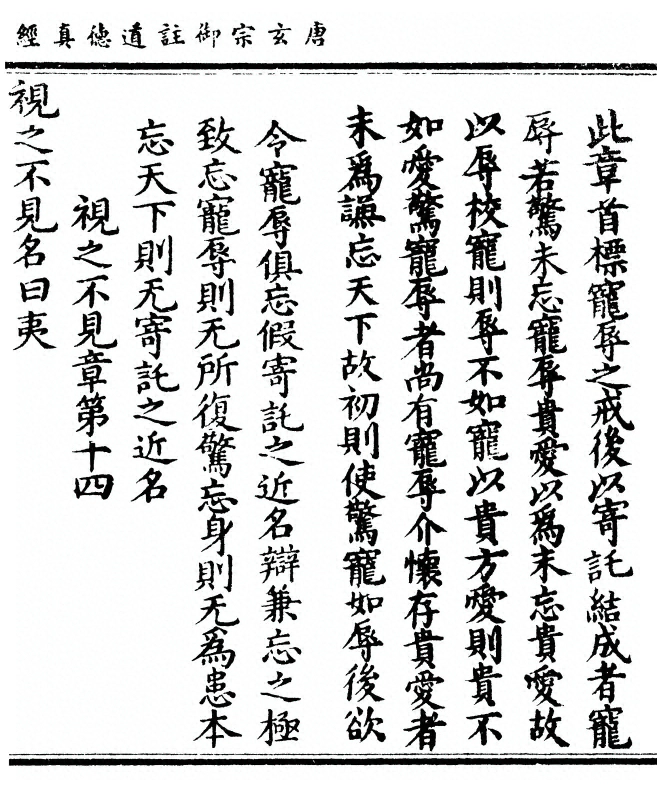 唐玄宗御註道德真經
此章首標寵辱之戒後以寄託結成者寵
辱若驚未忘寵辱貴愛以為未忘貴愛故
以辱校寵則辱不如寵以貴方愛則貴不
如愛驚寵辱者尚有寵辱介懷存貴愛者
未為謙忘天下故初則使驚寵如辱後欲
令寵辱俱忘假寄託之近名辯兼忘之極
致忘寵辱則无所復驚忘身則无為患本
忘天下則无寄託之近名
視之不見章第十四
視之不見名曰夷